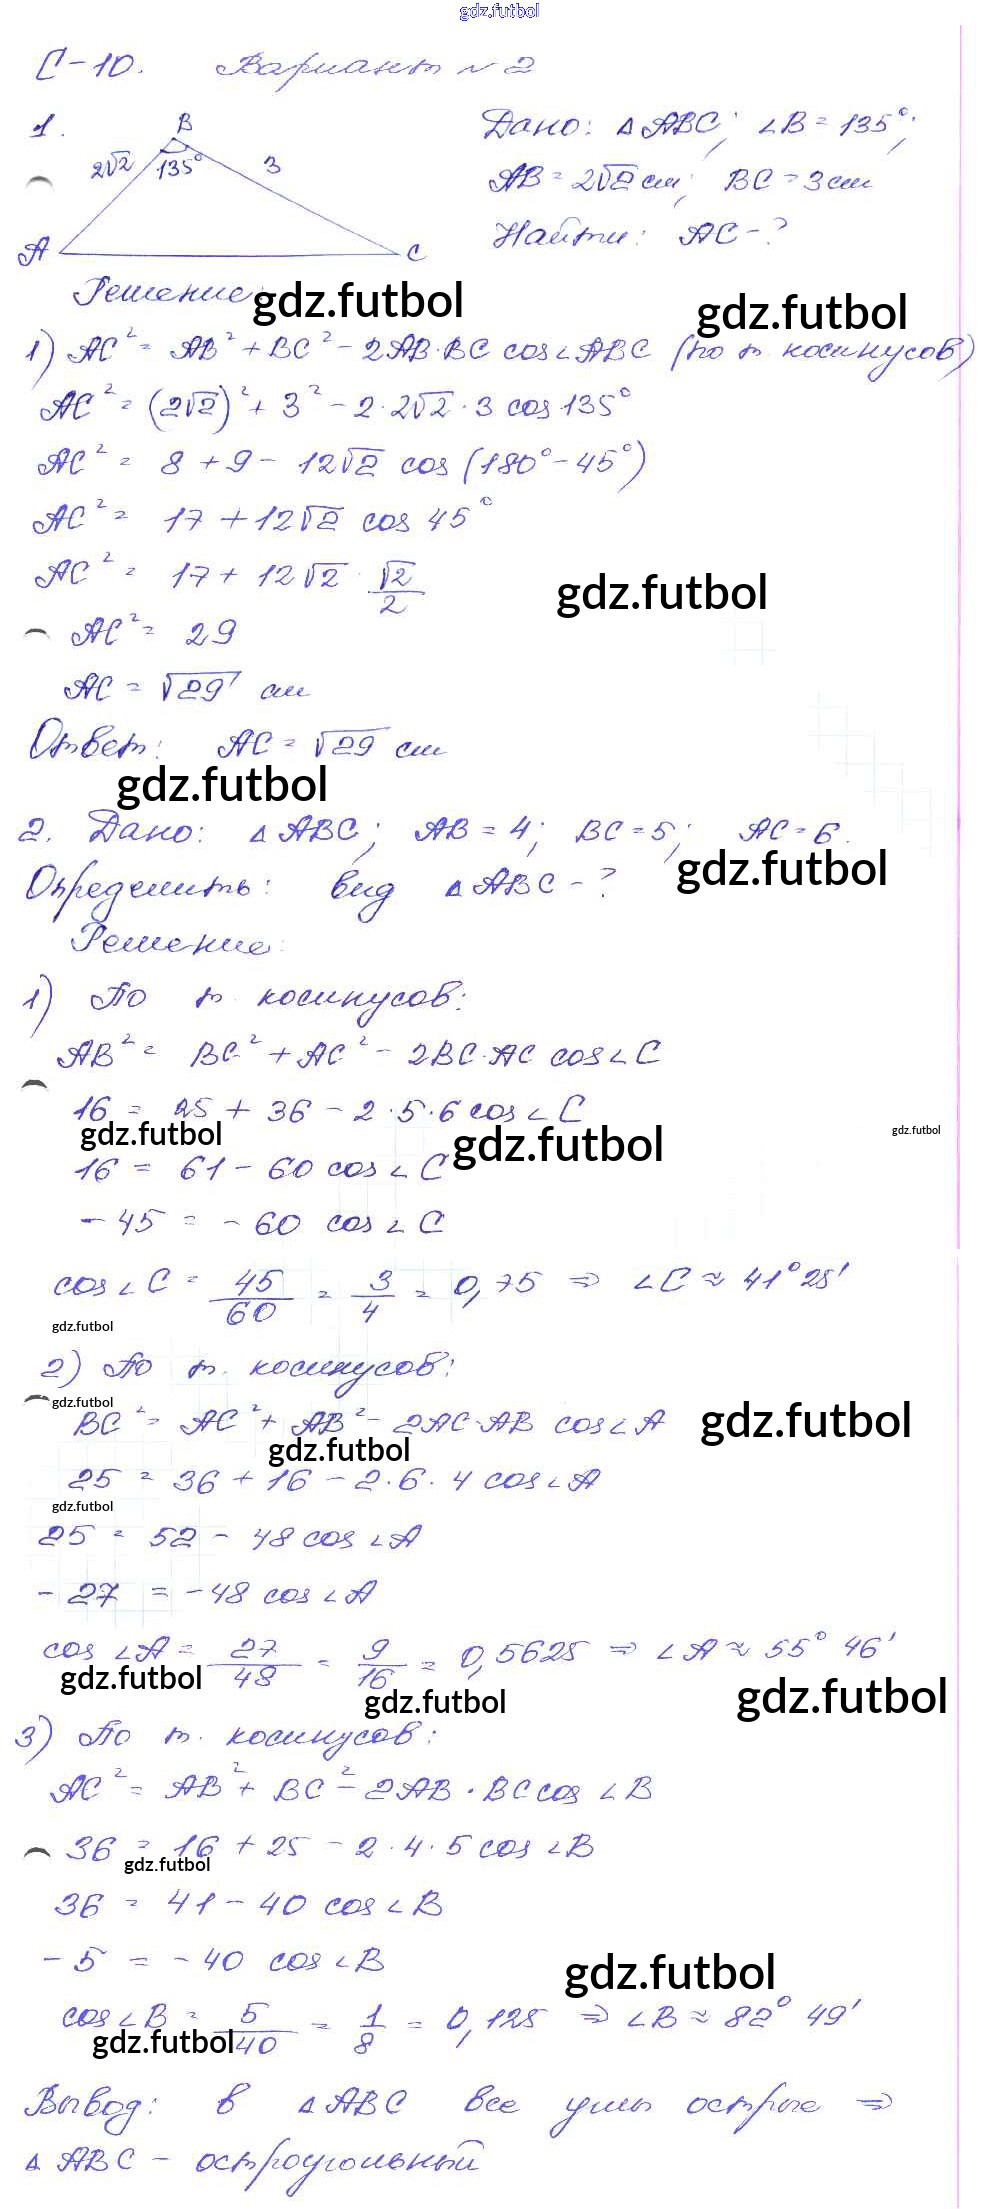 gdz.futbol
С-10. Вариант №2
1.
B
2√2 135° 3
A C
Дано: △ABC; ∠B = 135°;
AB = 2√2 см; BC = 3 см
Найти: AC - ?
Решение:
gdz.futbol
gdz.futbol
1) AC² = AB² + BC² - 2AB·BC cos∠ABC (по т. косинусов)
AC² = (2√2)² + 3² - 2·2√2·3 cos 135°
AC² = 8 + 9 - 12√2 cos (180° - 45°)
AC² = 17 + 12√2 cos 45°
AC² = 17 + 12√2 · √2/2
gdz.futbol
AC² = 29
AC = √29 см
Ответ: AC = √29 см
gdz.futbol
2. Дано: △ABC; AB = 4; BC = 5; AC = 6.
gdz.futbol
Определить: вид △ABC - ?
Решение:
1) По т. косинусов:
AB² = BC² + AC² - 2BC·AC cos∠C
16 = 25 + 36 - 2·5·6 cos∠C
gdz.futbol gdz.futbol gdz.futbol
16 = 61 - 60 cos∠C
- 45 = - 60 cos∠C
cos∠C = 45/60 = 3/4 = 0,75 ⇒ ∠C ≈ 41° 25'
gdz.futbol
2) По т. косинусов:
gdz.futbol
BC² = AC² + AB² - 2AC·AB cos∠A
gdz.futbol
gdz.futbol
25 = 36 + 16 - 2·6·4 cos∠A
gdz.futbol
25 = 52 - 48 cos∠A
- 27 = - 48 cos∠A
cos∠A = 27/48 = 9/16 = 0,5625 ⇒ ∠A ≈ 55° 46'
gdz.futbol gdz.futbol gdz.futbol
3) По т. косинусов:
AC² = AB² + BC² - 2AB·BC cos∠B
36 = 16 + 25 - 2·4·5 cos∠B
gdz.futbol
36 = 41 - 40 cos∠B
- 5 = - 40 cos∠B
gdz.futbol
cos∠B = 5/40 = 1/8 = 0,125 ⇒ ∠B ≈ 82° 49'
gdz.futbol
Вывод: в △ABC все углы острые ⇒
△ABC - остроугольный